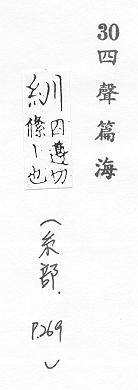 30四聲篇海
紃
四遵切
絛丨也
(糸部.P.269)